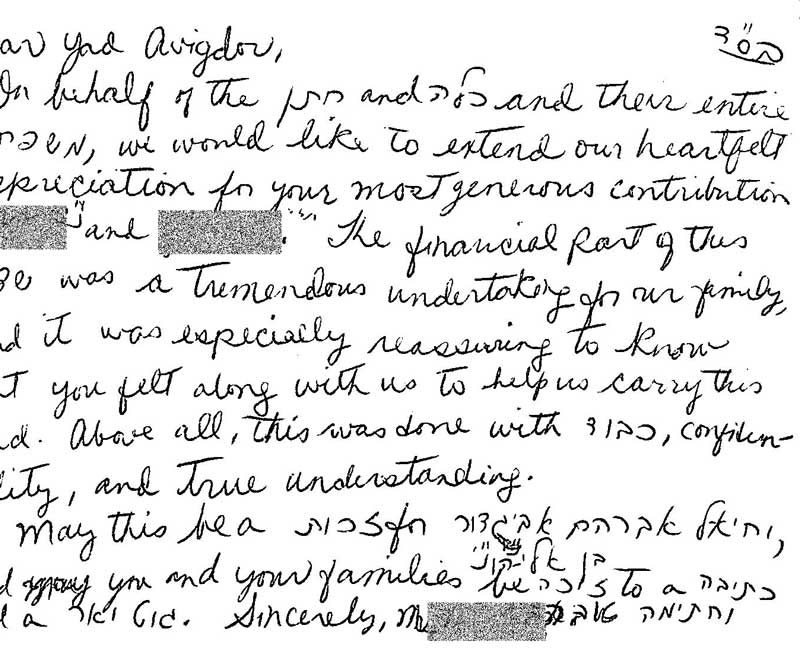 בס"ד
ar Yad Avigdor,
On behalf of the חתן and כלה and their entire
משפח, we would like to extend our heartfelt
preciation for your most generous contribution
and The financial part of this
was a tremendous undertaking for our family,
d it was especially reassuring to know
t you felt along with us to help us carry this
d. Above all, this was done with כבוד, confiden-
lity, and true understanding.
May this be a זכות for יחיאל אברהם אביגדור,
בן אלי' קוני'
d may you and your families be זוכה to a כתיבה
וחתימה טובה d a גוט יאר. Sincerely, M